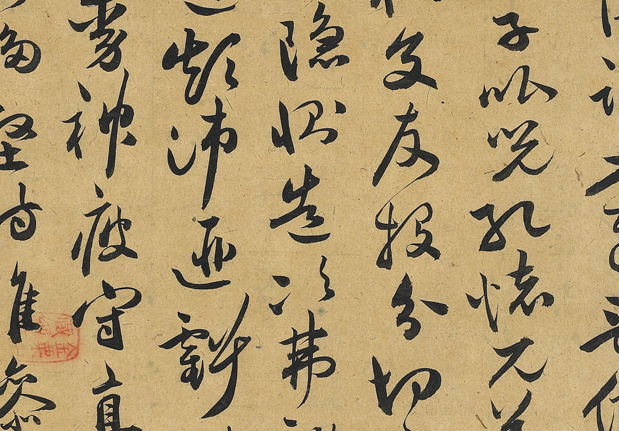 子比兒孔懷兄弟
交友投分切
隱惻造次弗
退顛沛匪虧
動神疲守真
移堅持雅操